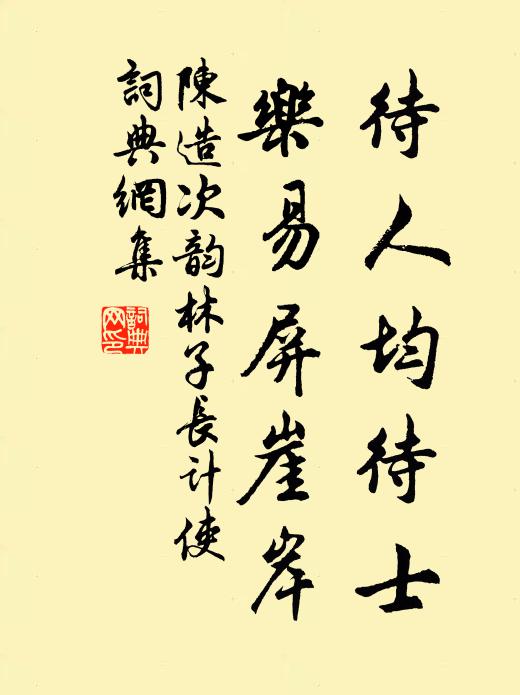 待人均待士
樂易屏崖岸
陳造次韵林子長計使
詞典網集
詞典網印